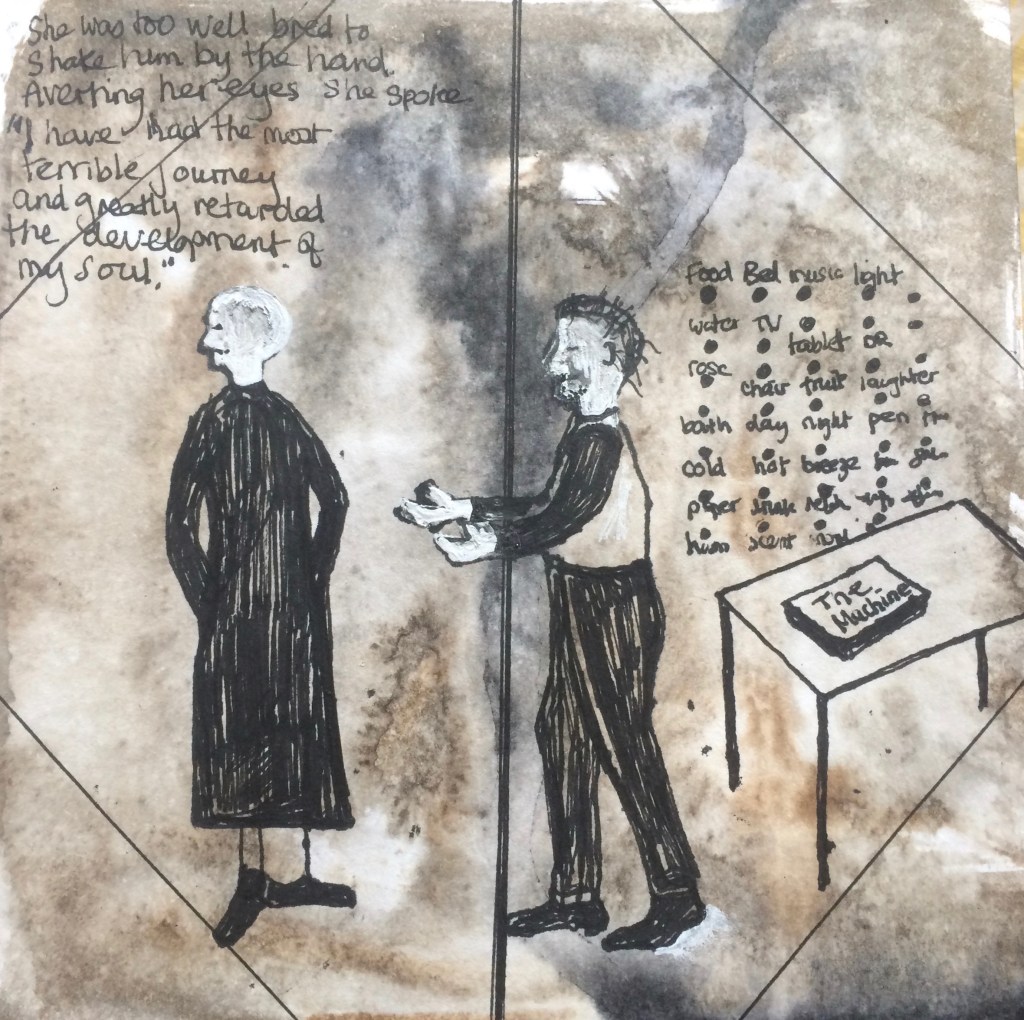 She was too well bred to
shake him by the hand.
Averting her eyes she spoke
"I have had the most
terrible journey
and greatly retarded
the development of
my soul."
Food Bed music light
water TV
tablet OR
chair fruit laughter
bath day night pen
cold hot breeze
paper
scent
The
Machine